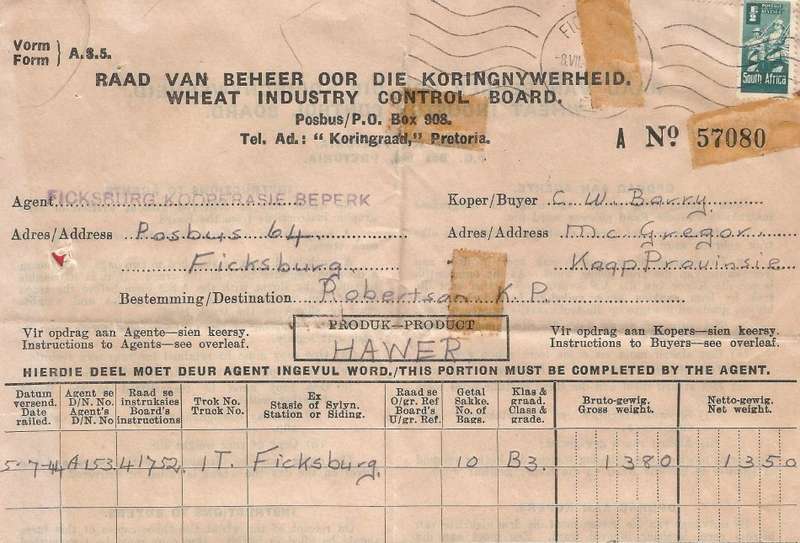 Vorm
Form } A.S.5.
RAAD VAN BEHEER OOR DIE KORINGNYWERHEID.
WHEAT INDUSTRY CONTROL BOARD.
Posbus/P.O. Box 908.
Tel. Ad.: "Koringraad," Pretoria.
South Africa
A No 57080
Agent FICKSBURG KOOPERASIE BEPERK
Koper/Buyer C. W. Barry.
Adres/Address Posbus 64.
Ficksburg.
Adres/Address Mc Gregor.
Kaap Provinsie
Bestemming/Destination Robertson K.P.
Vir opdrag aan Agente—sien keersy.
Instructions to Agents—see overleaf.
PRODUK—PRODUCT
HAWER
Vir opdrag aan Kopers—sien keersy.
Instructions to Buyers—see overleaf.
HIERDIE DEEL MOET DEUR AGENT INGEVUL WORD./THIS PORTION MUST BE COMPLETED BY THE AGENT.
Datum versend. Date railed.
Agent se D/N. No. Agent's D/N. No
Raad se instruksies Board's instructions
Trok No. Truck No.
Ex Stasie of Sylyn. Station or Siding.
Raad se O/gr. Ref Board's U/gr. Ref.
Getal Sakke. No. of Bags.
Klas & graad. Class & grade.
Bruto-gewig. Gross weight.
Netto-gewig. Net weight.
5-7-44 A153 41752 1T. Ficksburg. 10 B3. 1380 1350